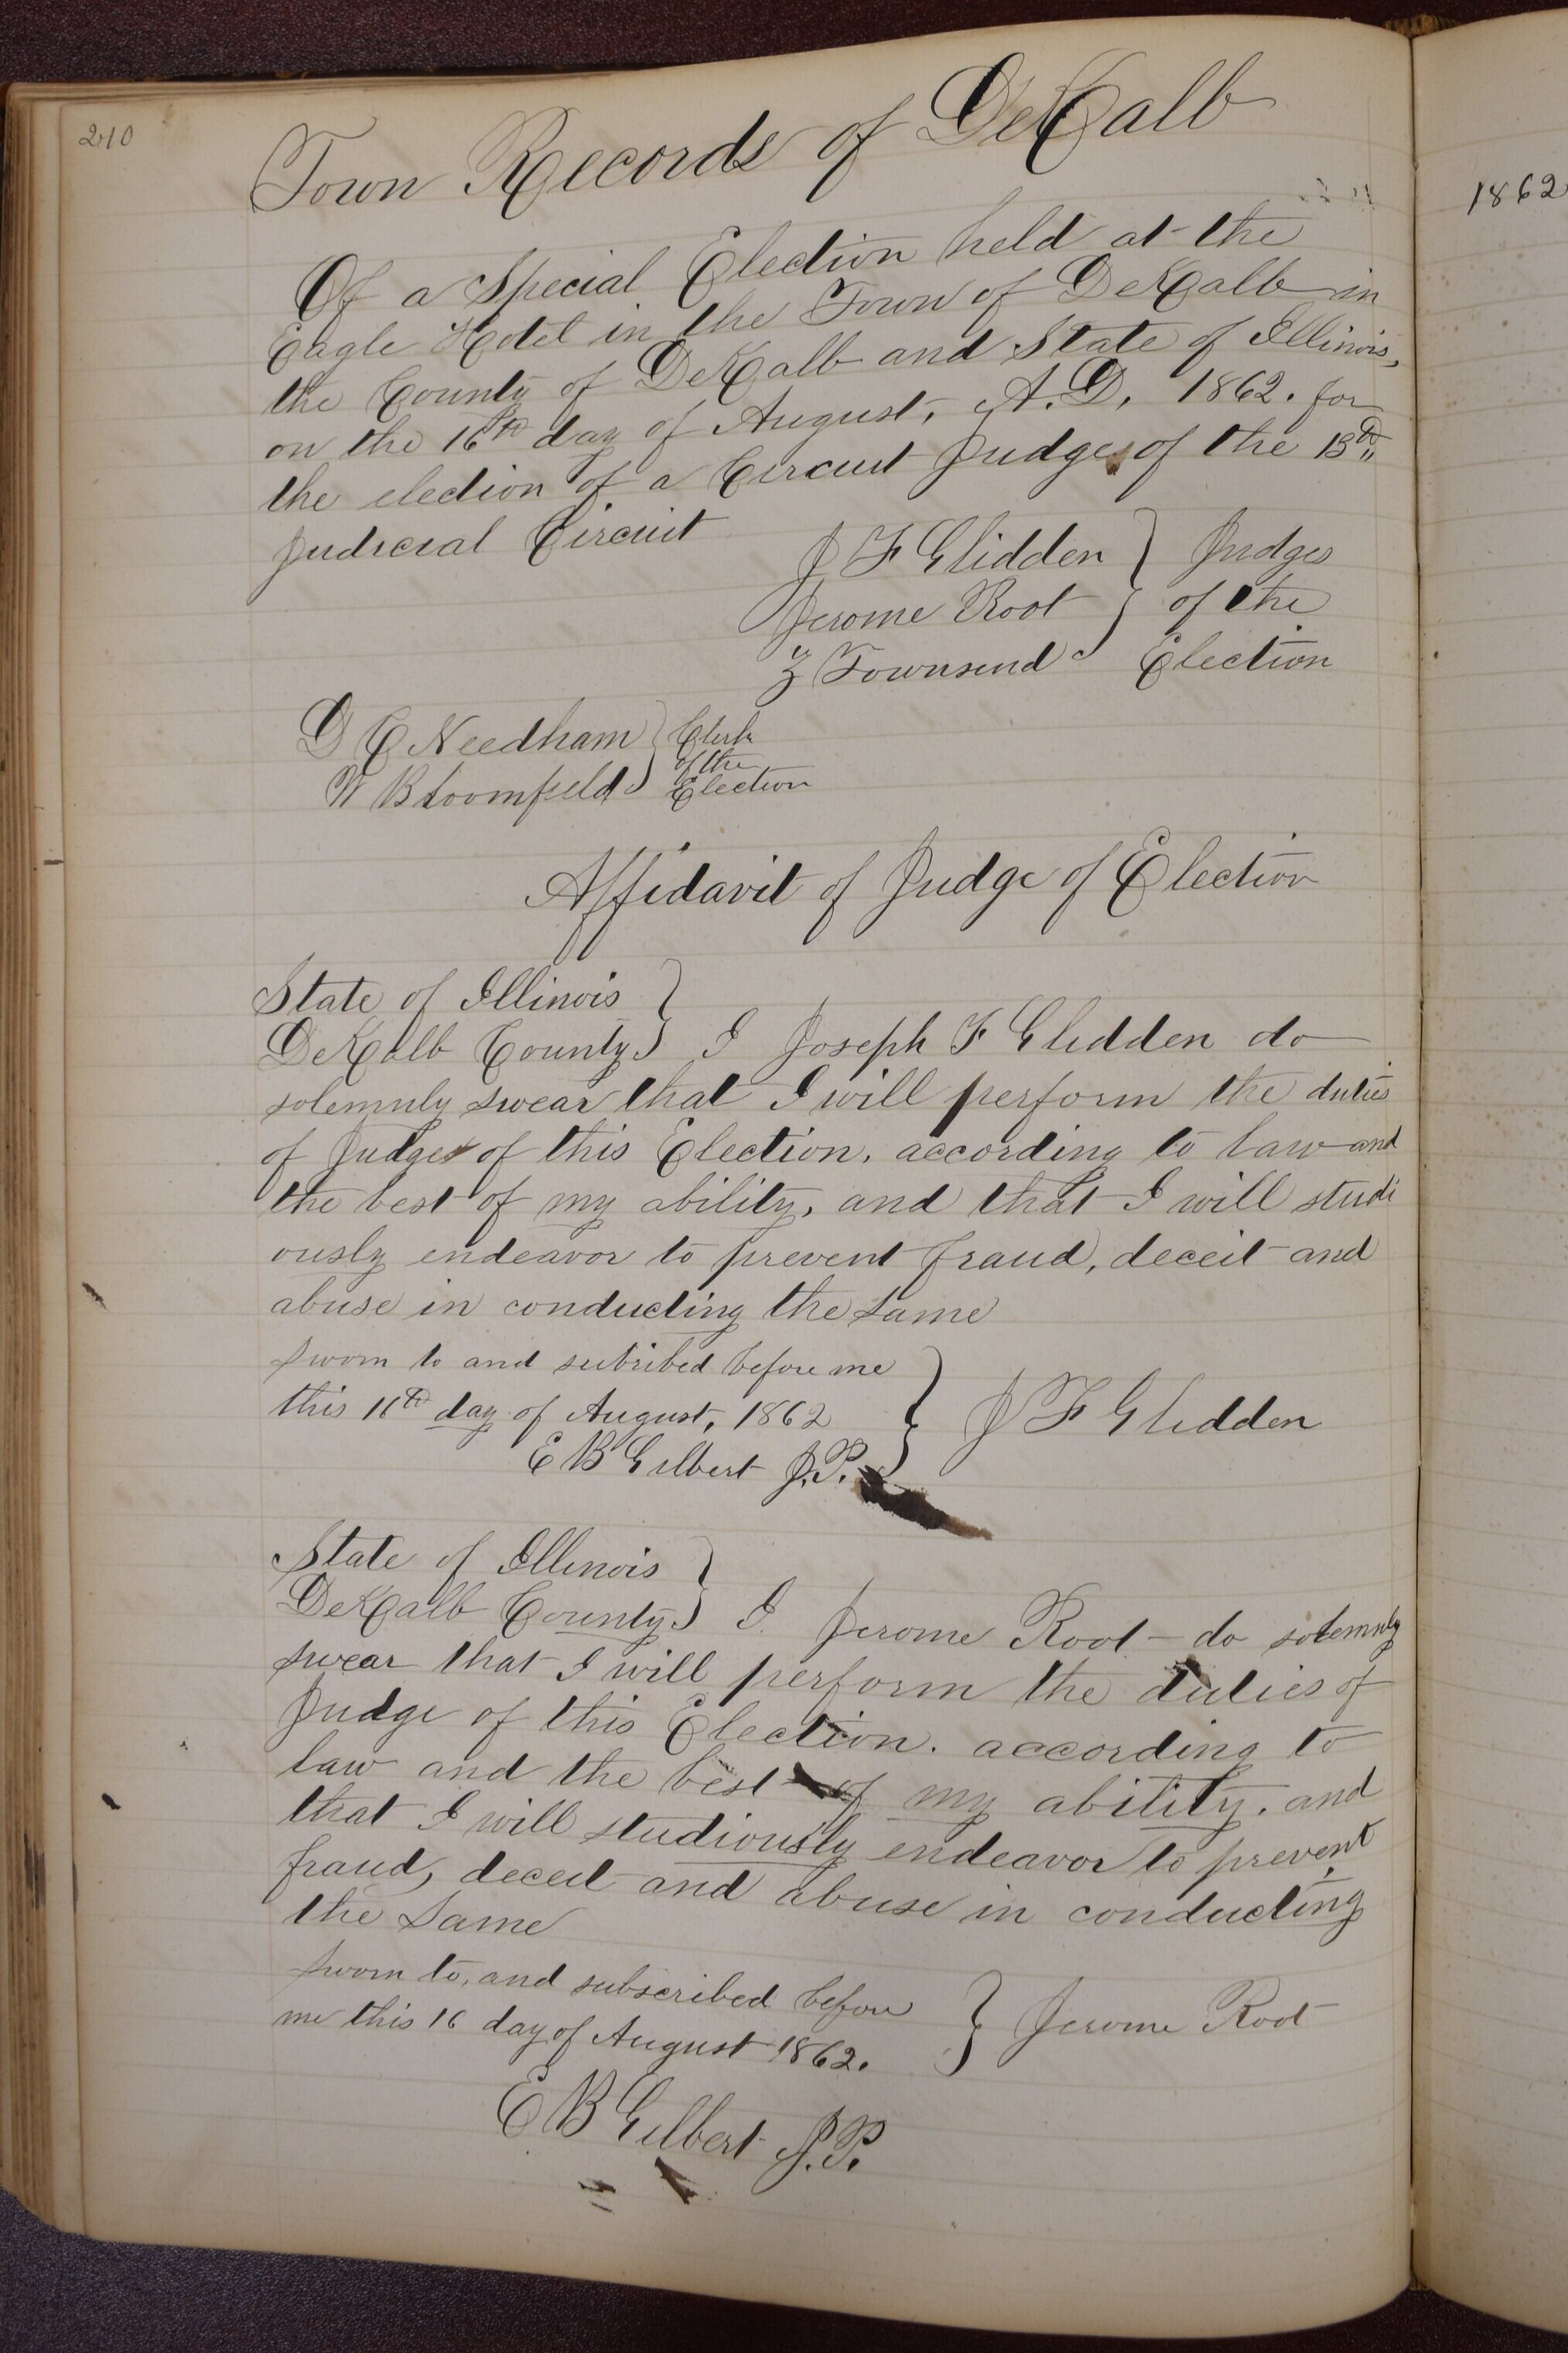 210
Town Records of DeKalb
1862
Of a Special Election held at the
Eagle Hotel in the Town of DeKalb in
the County of DeKalb and State of Illinois,
on the 16th day of August, A.D, 1862. for
the election of a Circuit Judge of the 13th
Judicial Circuit
J F Glidden } Judges
Jerome Root } of the
Z Townsend } Election
D C Needham } Clerk
of the
W Bloomfield } Election
Affidavit of Judge of Election
State of Illinois }
DeKalb County } I Joseph F Glidden do
solemnly swear that I will perform the duties
of Judge of this Election, according to law and
the best of my ability, and that I will studi
ously endeavor to prevent fraud, deceit and
abuse in conducting the same
Sworn to and subribed before me }
this 16th day of August, 1862 } J F Glidden
E B Gilbert J.P. }
State of Illinois }
DeKalb County } I Jerome Root do solemnly
swear that I will perform the duties of
Judge of this Election. according to
law and the best of my ability. and
that I will studiously endeavor to prevent
fraud, deceit and abuse in conducting
the same
Sworn to, and subscribed before }
me this 16 day of August 1862. } Jerome Root
E B Gilbert J.P.